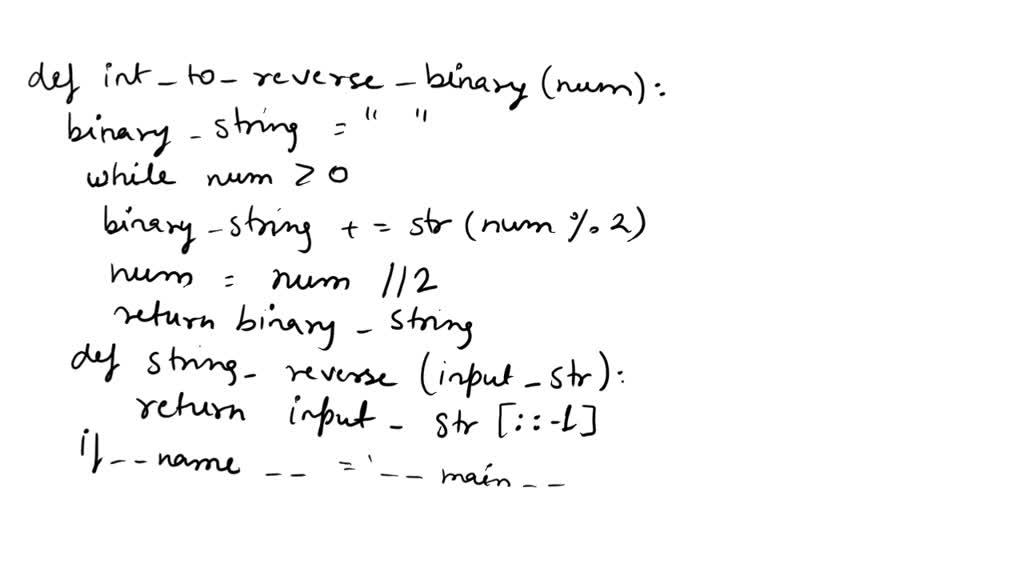 def int_to_reverse_binary(num):
binary_string = " "
while num ≥ 0
binary_string += str(num % 2)
num = num //2
return binary_string
def string_reverse (input_str):
return input_str [::-1]
if __name__ = '__main__